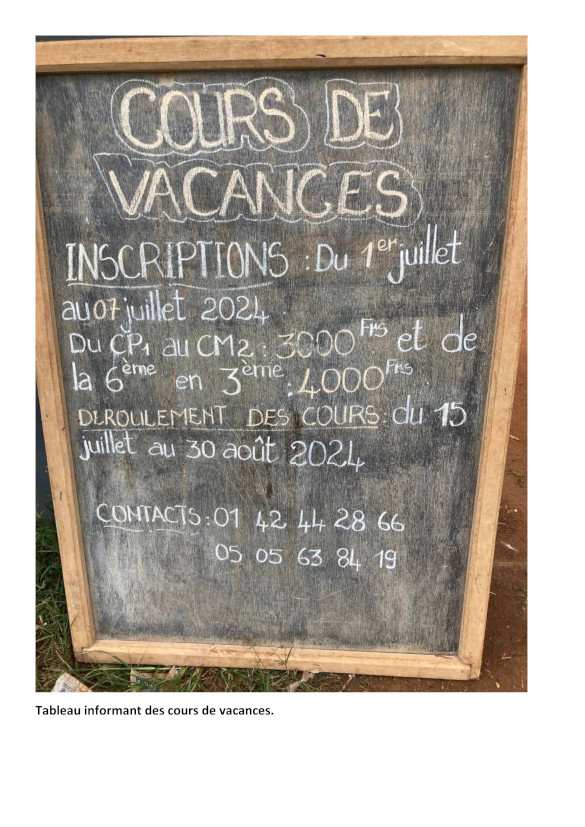 COURS DE
VACANCES
INSCRIPTIONS : Du 1er juillet
au 07 juillet 2024.
Du CP1 au CM2 : 3000 Frs et de
la 6ème en 3ème : 4000 Frs
DEROULEMENT DES COURS : du 15
juillet au 30 août 2024
CONTACTS : 01 42 44 28 66
05 05 63 84 19
Tableau informant des cours de vacances.